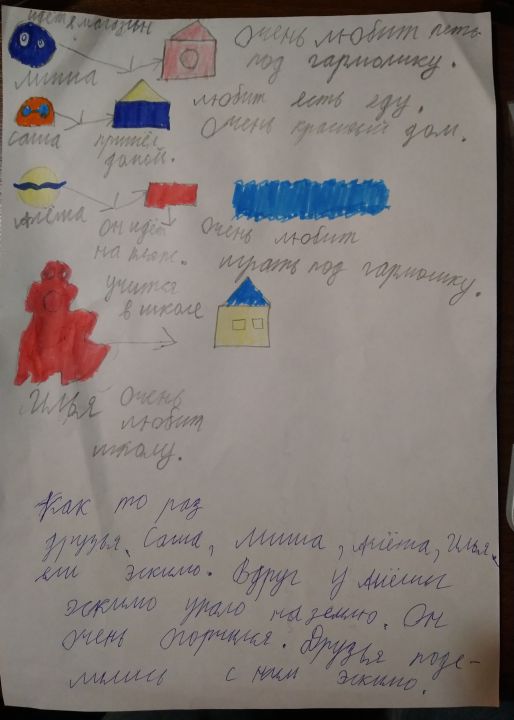 идёт в магазын
Миша
Очень любит петь
под гармошку.
Саша
пришёл
домой.
любит есть еду.
Очень красивый дом.
Алёша
Он идёт
на пляж.
Очень любит
играть под гармошку.
Илья
учится
в школе
Очень
любит
школу.
Как то раз
друзья, Саша, Миша, Алёша, Илья,
ели эскимо. Вдруг у Алёши
эскимо упало на землю. Он
очень огорчился. Друзья поде-
лились с ним эскимо.